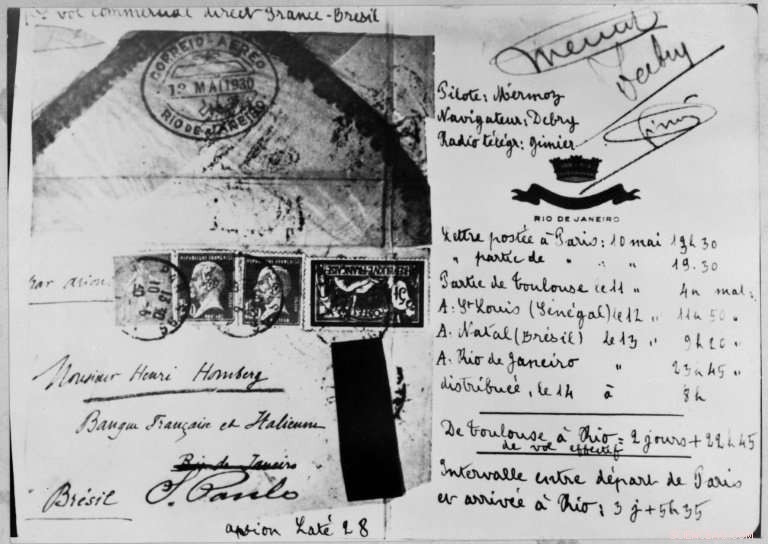 1er vol commercial direct France-Brésil
CORREIO AEREO
12 MAI 1930
RIO DE JANEIRO
Par avion
REPUBLIQUE FRANÇAISE
Monsieur Henri Homberg
Banque Française et Italienne
Rio de Janeiro
S. Paulo
Brésil
avion Laté 28
Debry
Pilote: Mermoz
Navigateur: Debry
Radio télégr: Gimier
RIO DE JANEIRO
Lettre postée à Paris: 10 mai 19h30
" partie de " " " 19.30
Partie de Toulouse le 11 " 4h mat:
A: St Louis (Sénégal) le 12 " 11h50 "
A: Natal (Brésil) le 13 " 9h20 "
A: Rio de Janeiro " 23h45 "
distribuée, le 14 à 8h
De Toulouse à Rio = 2 jours + 22h45
de vol effectif
Intervalle entre départ de Paris
et arrivée à Rio: 3 j + 5h35